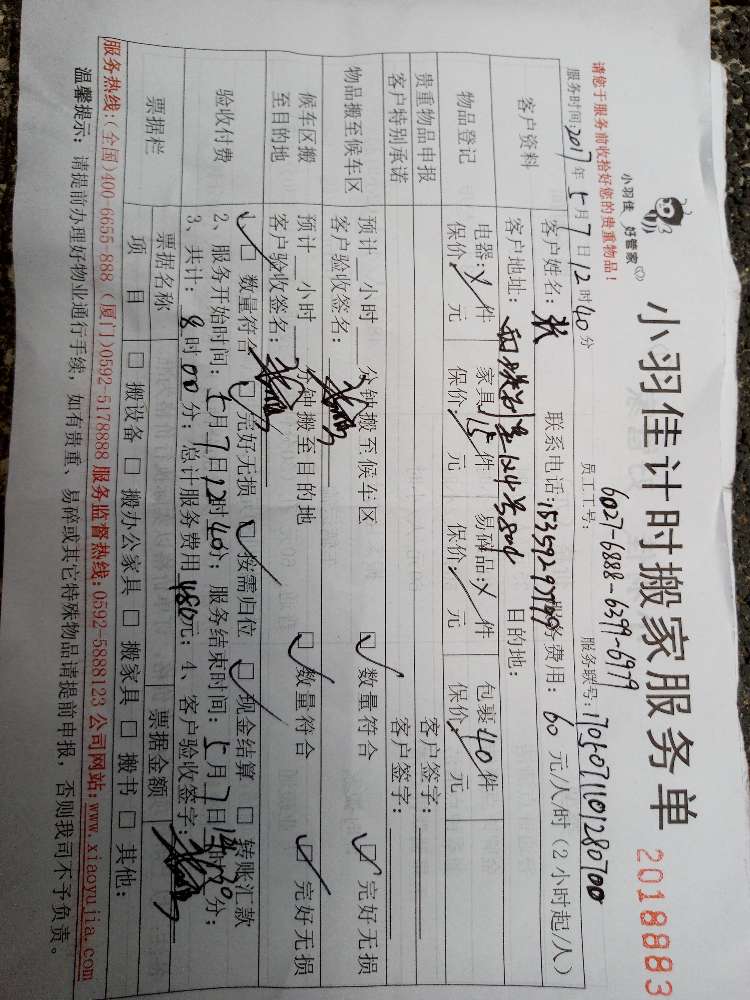 小羽佳 好管家
小羽佳计时搬家服务单
2018883
请您于服务前收拾好您的贵重物品！
员工工号： 6027-6888-6399-6979
服务时间：2017年5月7日12时40分
服务联号：1705071101280700
客户资料
客户姓名： 联系电话： 服务费用：60元/人/时（2小时起/人）
客户地址： 目的地：
物品登记
电器： 件 家具15件 易碎品： 件 包裹40件
保价 元 保价 元 保价 元 保价 元
贵重物品申报 客户签字：
客户特别承诺 客户签字：
物品搬至候车区
预计 小时 分钟搬至候车区 ☑数量符合 ☑完好无损
客户验收签名：
候车区搬至目的地
预计 小时 分钟搬至目的地 ☑数量符合 ☑完好无损
客户验收签名：
验收付费
1、☑数量符合 ☑完好无损 ☑按需归位 ☑现金结算 □转账汇款
2、服务开始时间：5月7日12时40分；服务结束时间：5月7日14时 分；
3、共计：8时00分；总计服务费用480元；4、客户验收签字：
票据栏
票据名称 票据金额
项目 □搬设备 □搬办公家具 □搬家具 □搬书 □其他：
服务热线：（全国）400-6655-888（厦门）0592-5178888 服务监督热线：0592-5888123 公司网站：www.xiaoyujia.com
温馨提示：请提前办理好物业通行手续，如有贵重、易碎或其它特殊物品请提前申报，否则我司不予负责。